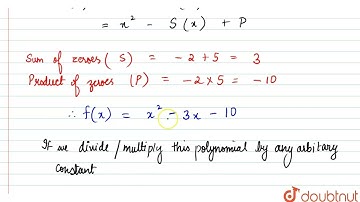 = x² - S(x) + P
Sum of zeroes (S) = -2+5 = 3
Product of zeroes (P) = -2×5 = -10
∴ f(x) = x² - 3x - 10
If we divide / multiply this polynomial by any arbitary
constant
doubtnut